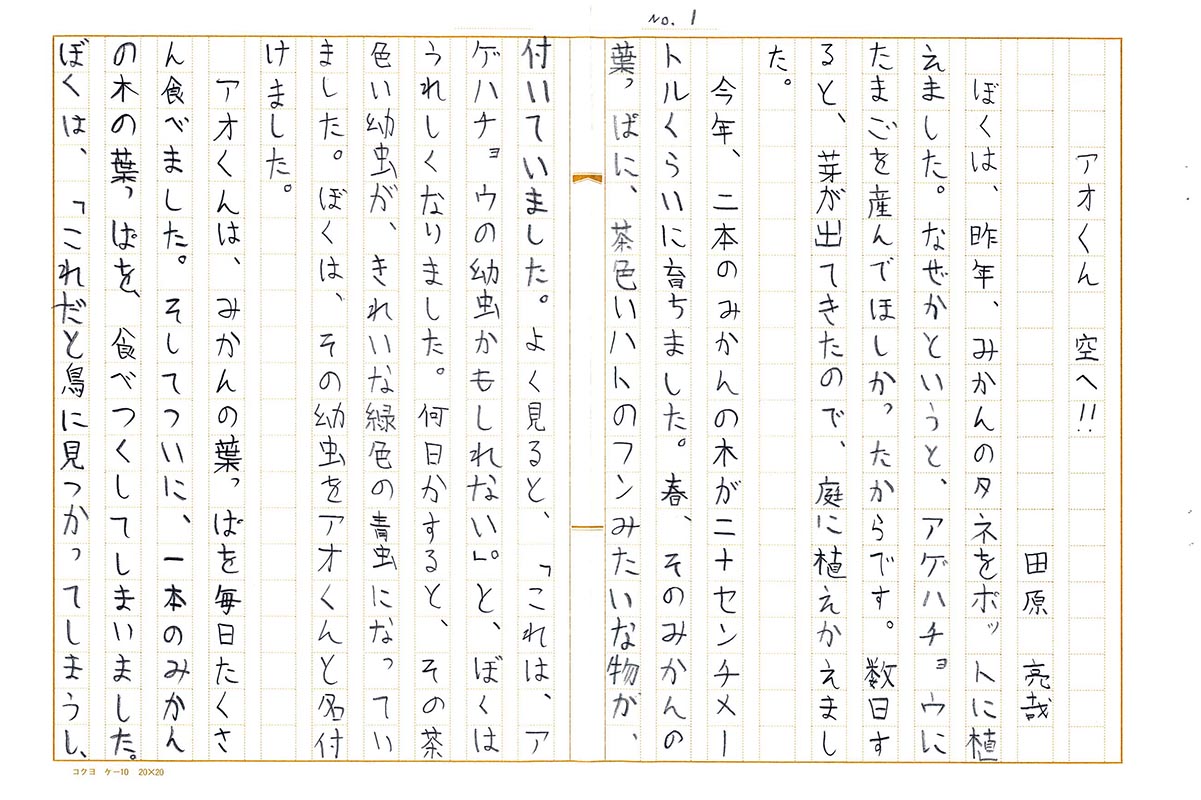 No. 1
アオくん　空へ!!
田原　亮哉
ぼくは、昨年、みかんのタネをポットに植
えました。なぜかというと、アゲハチョウに
たまごを産んでほしかったからです。数日す
ると、芽が出てきたので、庭に植えかえまし
た。
今年、二本のみかんの木が二十センチメー
トルくらいに育ちました。春、そのみかんの
葉っぱに、茶色いハトのフンみたいな物が、
付いていました。よく見ると、「これは、ア
ゲハチョウの幼虫かもしれない。」と、ぼくは
うれしくなりました。何日かすると、その茶
色い幼虫が、きれいな緑色の青虫になってい
ました。ぼくは、その幼虫をアオくんと名付
けました。
アオくんは、みかんの葉っぱを毎日たくさ
ん食べました。そしてついに、一本のみかん
の木の葉っぱを、食べつくしてしまいました。
ぼくは、「これだと鳥に見つかってしまうし、
コクヨ ケ-10 20×20